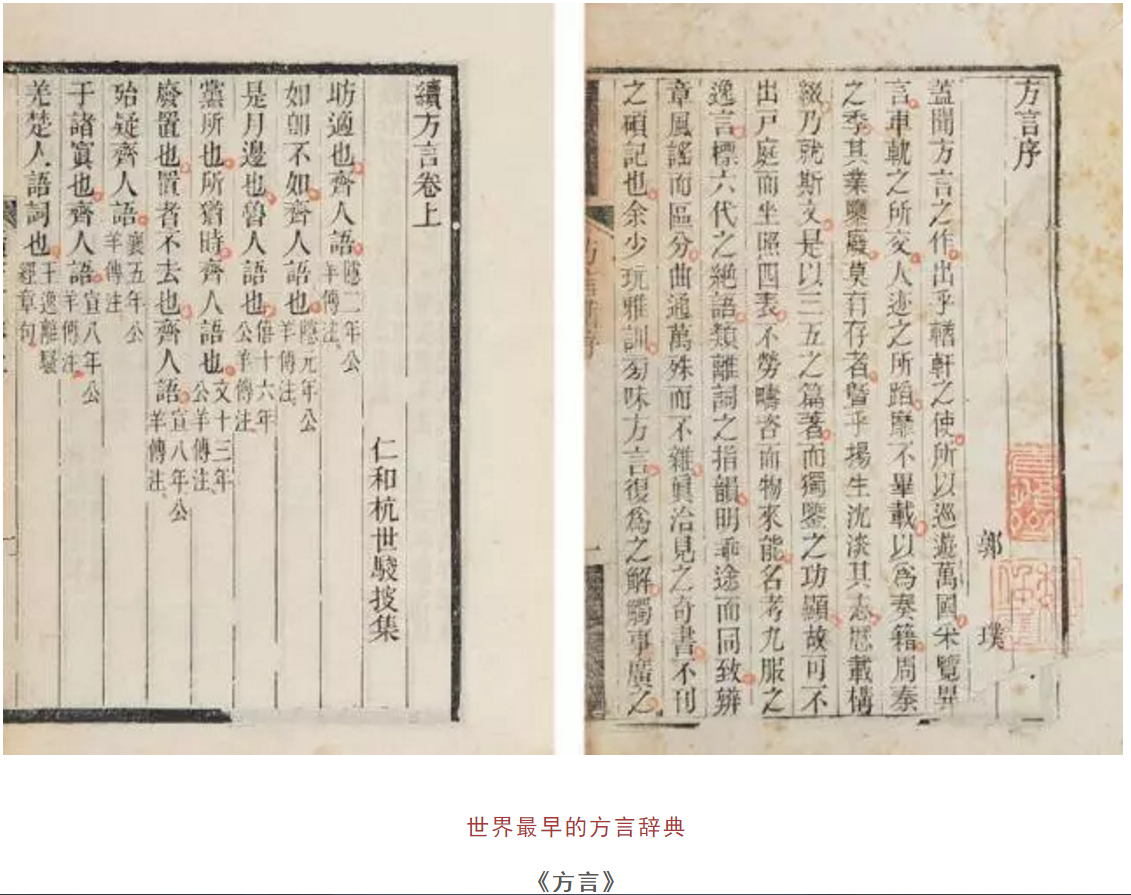 方言序
郭璞
蓋聞方言之作出乎輶軒之使所以巡遊萬國采覽異
言車軌之所交人迹之所蹈靡不畢載以爲奏籍周秦
之季其業隳廢莫有存者曁乎揚生沈淡其志歷載構
綴乃就斯文是以三五之篇著而獨鑒之功顯故可不
出戶庭而坐照四表不勞疇咨而物來能名考九服之
逸言標六代之絶語類離詞之指韻明乖途而同致辨
章風謠而區分曲通萬殊而不雜眞洽見之奇書不刊
之碩記也余少玩雅訓旁味方言復爲之解觸事廣之
續方言卷上
仁和杭世駿搜集
昉適也齊人語隱二年公羊傳注
如卽不如齊人語也隱元年公羊傳注
是月邊也魯人語也僖十六年公羊傳注
黨所也所猶時齊人語也文十三年公羊傳注
廢置也置者不去也齊人語宣八年公羊傳注
殆疑齊人語襄五年公羊傳注
于諸寘也齊人語宣八年公羊傳注
羌楚人語詞也王逸離騷經章句
世界最早的方言辞典
《方言》